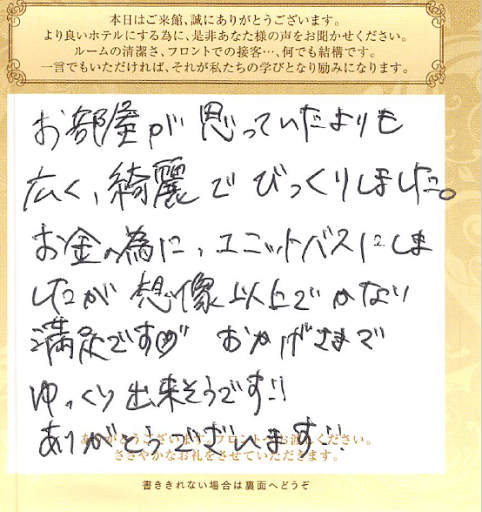 本日はご来館、誠にありがとうございます。
より良いホテルにする為に、是非あなた様の声をお聞かせください。
ルームの清潔さ、フロントでの接客…、何でも結構です。
一言でもいただければ、それが私たちの学びとなり励みになります。
お部屋が思っていたよりも
広く、綺麗でびっくりしました。
お金の為に、ユニットバスにしま
したが想像以上でかなり
満足です おかげさまで
ゆっくり出来そうです!!
ありがとうございます!!
ありがとうございます。フロントへお渡しください。
ささやかなお礼をさせていただきます。
書ききれない場合は裏面へどうぞ